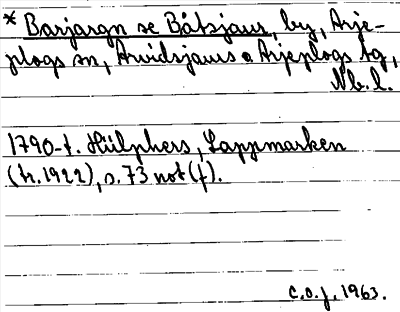 * Barjargn se Båtsjaur, by, Arje-
plogs sn, Arvidsjaurs o Arjeplogs tg,
Nb. l.
1790-t. Hülphers, Lappmarken
(tr. 1922), s. 73 not (f).
C.O.J. 1963.